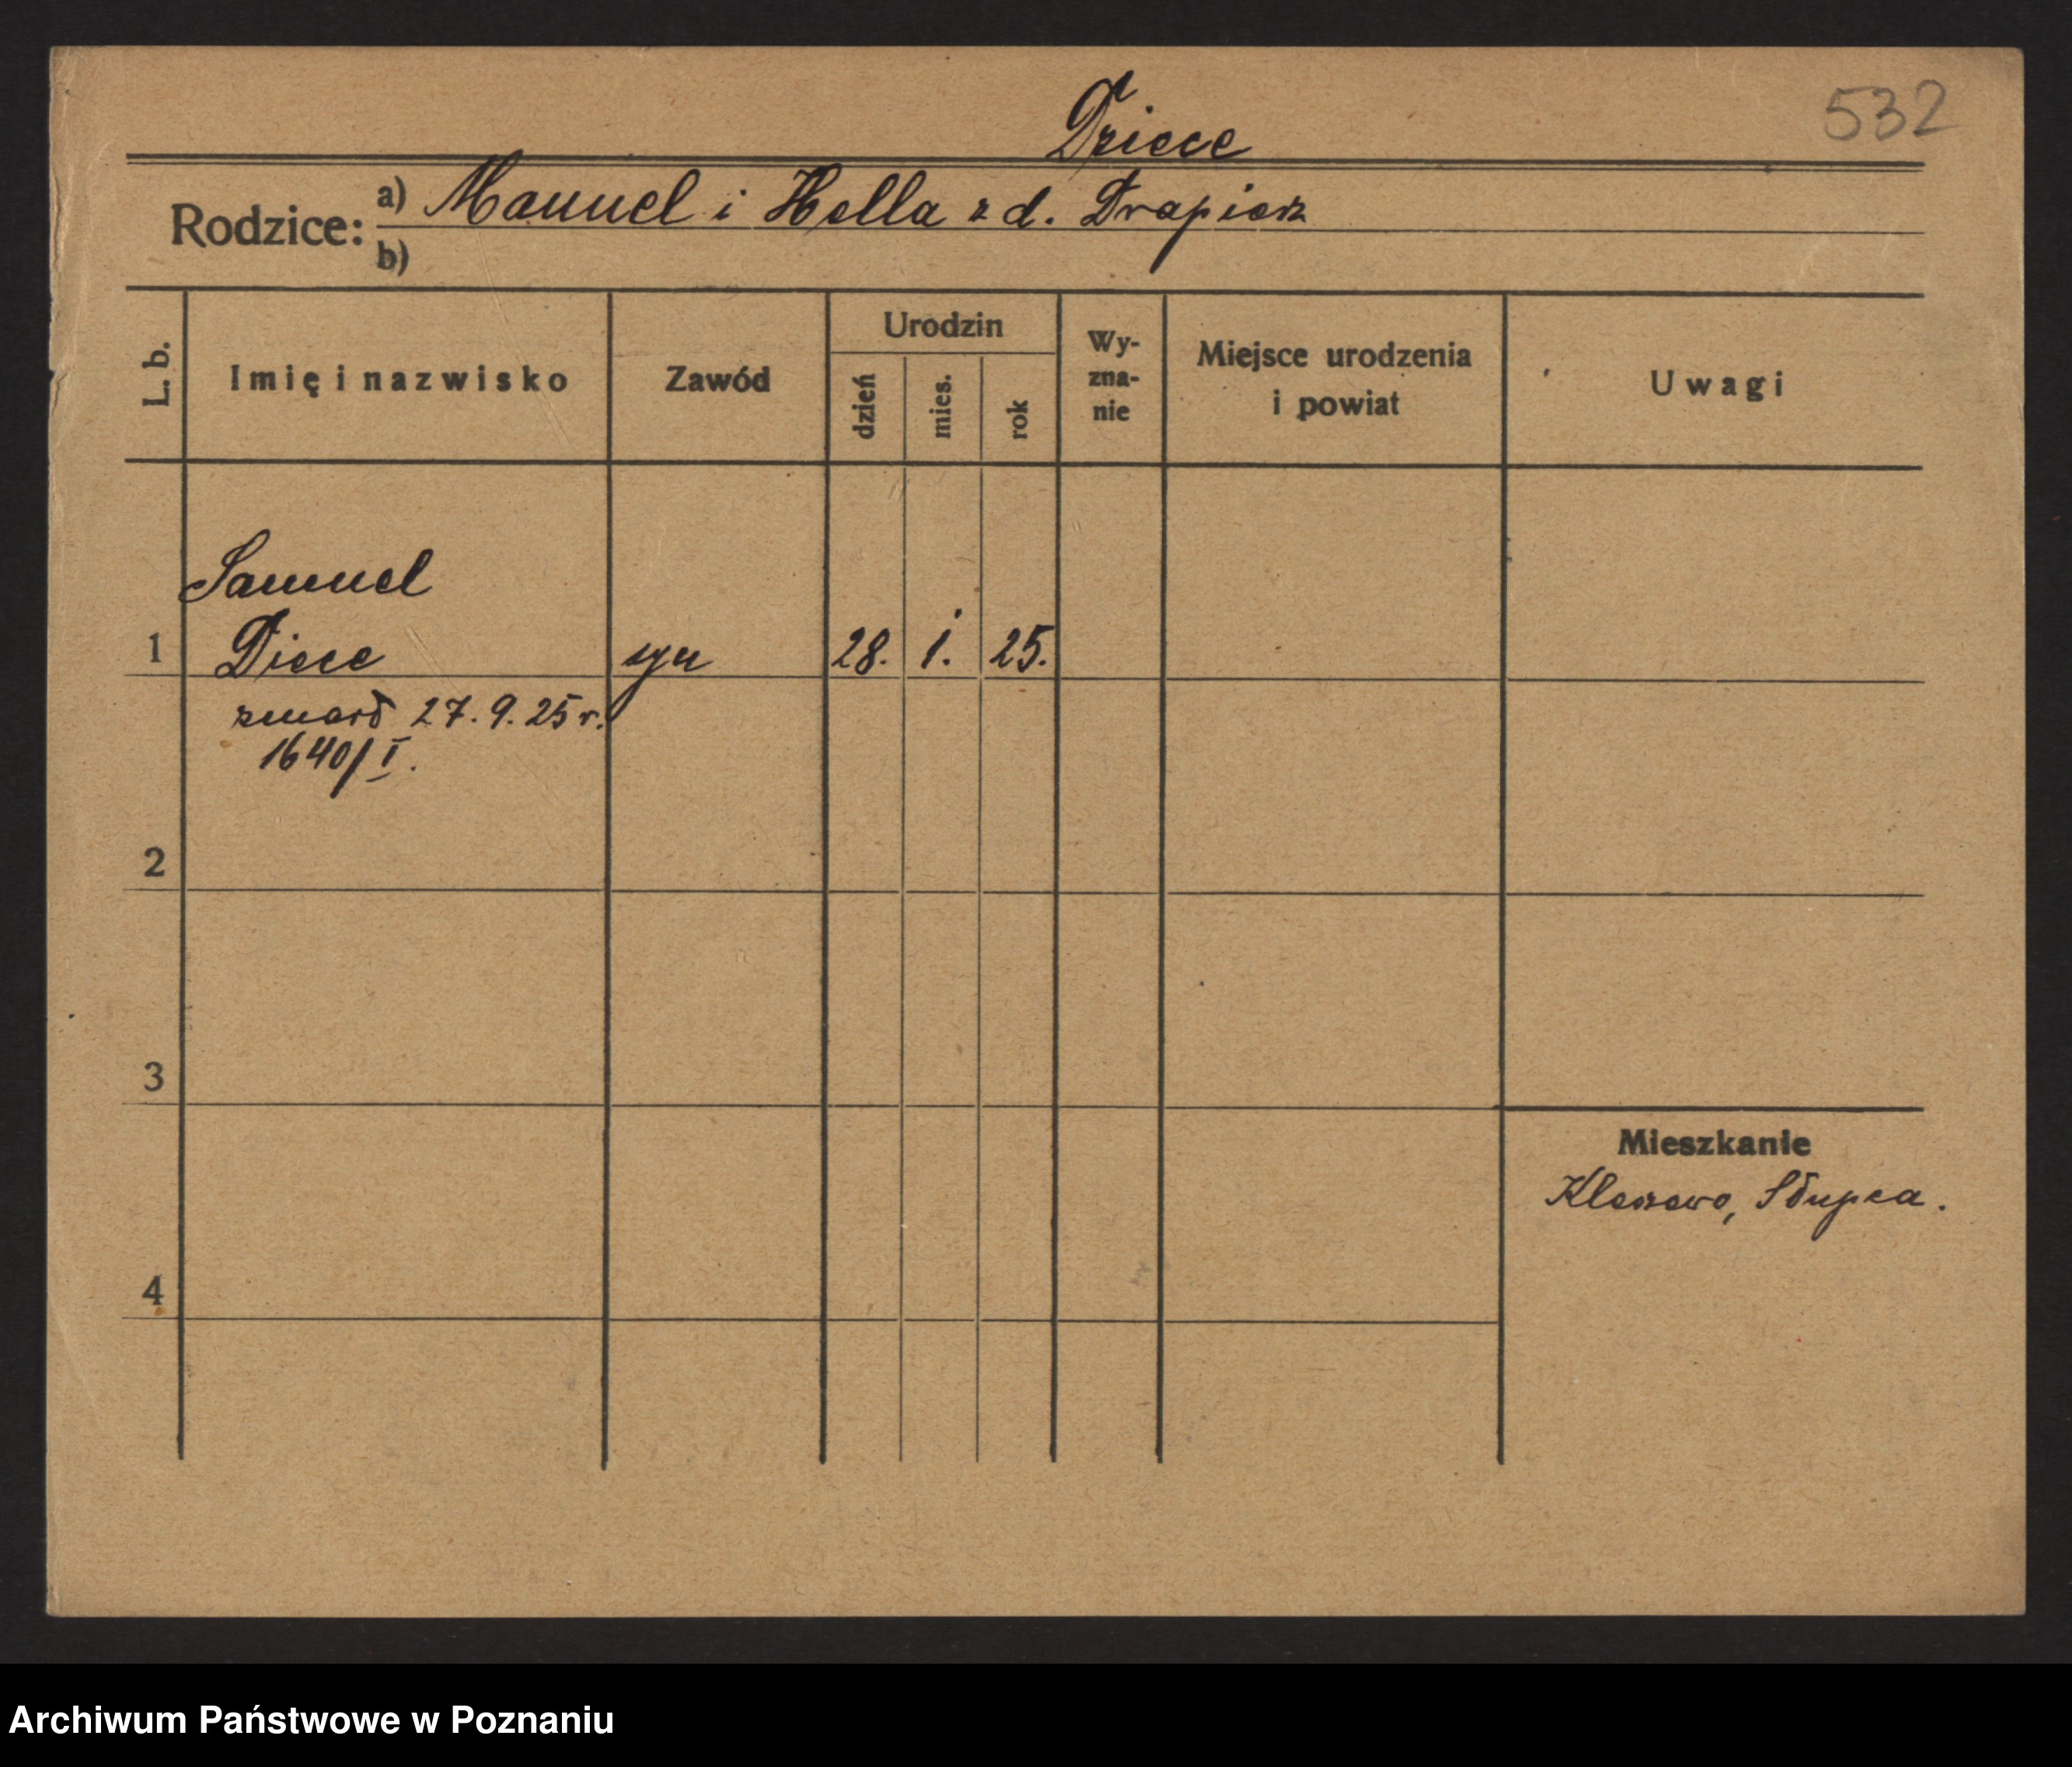 532
Dziece
Rodzice: a) Manuel i Hella z d. Drapierz
b)
L. b. Imię i nazwisko Zawód Urodzin dzień mies. rok Wy-zna-nie Miejsce urodzenia i powiat Uwagi
Samuel
1 Diece syn 28. 1. 25.
zmarł 27. 9. 25 r.
1640/I.
2
3
Mieszkanie
Kleczewo, Słupca.
4
Archiwum Państwowe w Poznaniu